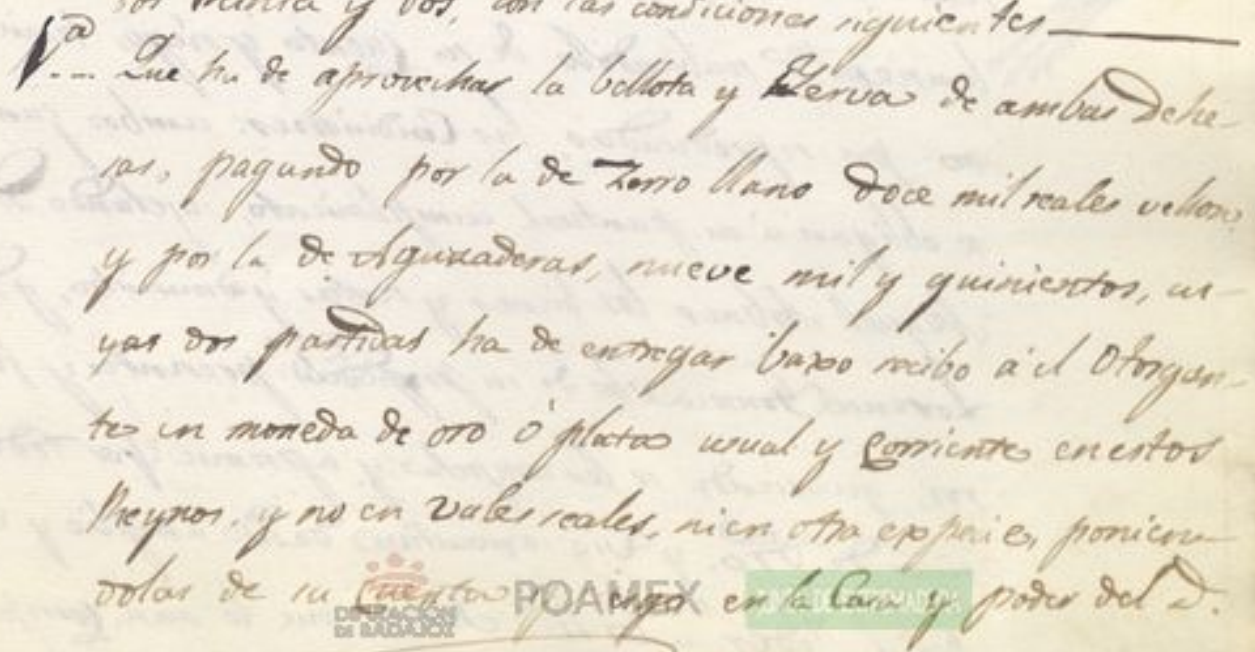 treinta y dos, con las condiciones siguientes
1ª... Que ha de aprovechar la bellota y Yerva de ambas Dehe-
sas, pagando por la de Zorro llano doce mil reales vellon,
y por la de Aguzaderas, nueve mil y quinientos, cu-
yas dos partidas ha de entregar baxo recibo á el Otorgan-
te en moneda de oro ó plata usual y corriente en estos
Reynos, y no en vales reales, ni en otra especie, ponien-
dolas de su Cuenta y en la Casa y poder del D.
DIPUTACIÓN DE BADAJOZ
POAMEX